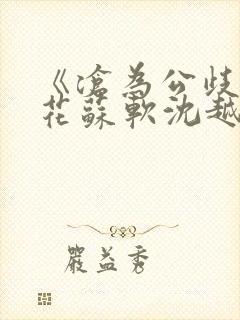 《滄為公歧
花蘇軟沈越
嚴益秀